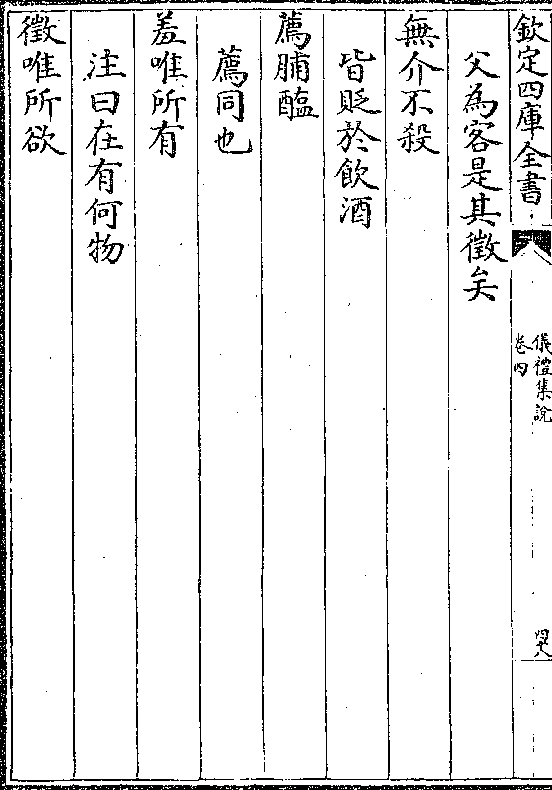 欽定四庫全書
儀禮集說
卷四
四八
父為客是其徵矣
無介不殺
皆貶於飲酒
薦脯醢
薦同也
羞唯所有
注曰在有何物
徵唯所欲